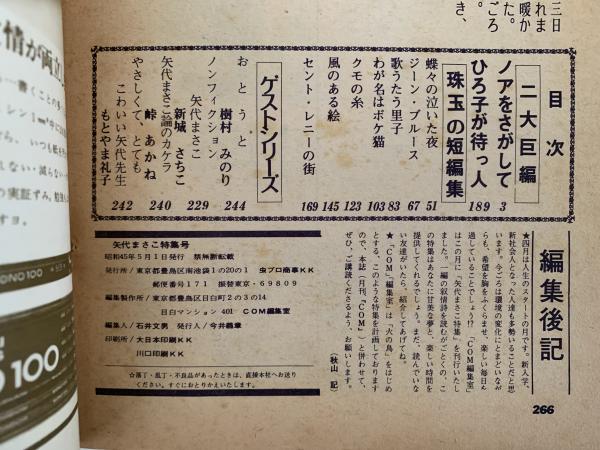 三日
れま
暖か
た。
ごろ
き、
目次
二大巨編
ノアをさがして 3
ひろ子が待っ人 189
珠玉の短編集
蝶々の泣いた夜 51
ジーン・ブルース 67
歌うたう里子 83
わが名はボケ猫 103
クモの糸 123
風のある絵 145
セント・レニーの街 169
ゲストシリーズ
おとうと
樹村みのり 244
ノンフィクション
矢代まさこ 229
新城さちこ
矢代まさこ論のカケラ 240
峠あかね
やさしくて、とても
こわいい矢代先生
もとやま礼子 242
矢代まさこ特集号
昭和45年5月1日発行 禁無断転載
発行所/東京都豊島区南池袋1の20の1 虫プロ商事KK
郵便番号171 振替東京・69809
編集製作所/東京都豊島区目白町2の3の14
目白マンション401 COM編集室
編集人/石井文男 発行人/今井義章
印刷所/大日本印刷KK
川口印刷KK
☆落丁・乱丁・不良品があったときは、直接本社へお送り
ください。すぐにおとりかえいたします。
編集後記
★四月は人生のスタートの月です。新入学、
新社会人となった人達も多勢いることだと思
います。今ごろは環境の変化にとまどいなが
らも、希望を胸をふくらませ、楽しい毎日を
過していることでしょう!? 「COM編集室」
はこの月に「矢代まさこ特集」を刊行いたし
ました。一編の叙情詩を読むがごとくの、こ
の特集はあなたに甘美な夢と、楽しい時間を
提供してくれるでしょう。まだ、読んでいな
い友達がいたら、紹介してあげてね。
★「COM」編集室」は「火の鳥」をはじめ
とする、このような特集を計画しております
ので、本誌「月刊、『COM』」と併わせて、
ぜひ、ご購読くださるよう、お願いします。
(秋山 記)
266
情が両立
100